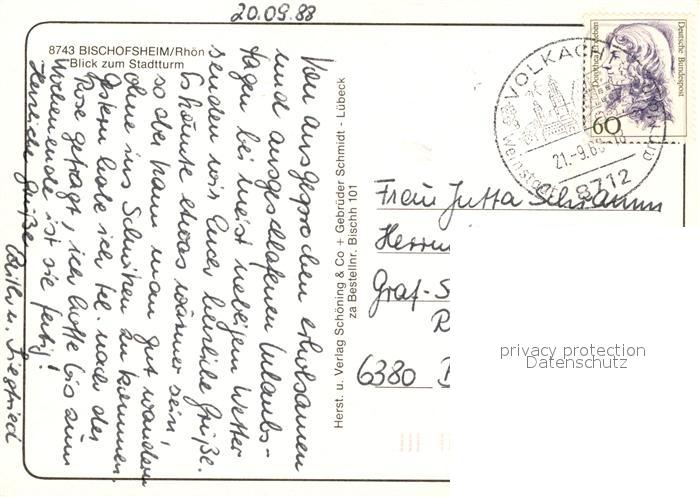 20.09.88
8743 BISCHOFSHEIM/Rhön
Blick zum Stadtturm
Von ausgesprochen erholsamen
und ausgeschlafenen Urlaubs-
tagen bei meist nebeligem Wetter
senden wir Euch herzliche Grüße.
Es könnte etwas wärmer sein,
so aber kann man gut wandern
ohne ins Schwitzen zu kommen.
Gestern habe ich tel. nach der
Rose gefragt, ich hoffe bis zum
Wochenende ist sie fertig!
Herzliche Grüße
u. Siegfried
Herst. u. Verlag Schöning & Co + Gebrüder Schmidt - Lübeck
za Bestellnr. Bischh 101
Deutsche Bundespost
60
VOLKACH
Weinstadt
21.-9.88
8712
Frau Jutta Schramm
Herrn
Graf-S
R
6380
privacy protection
Datenschutz